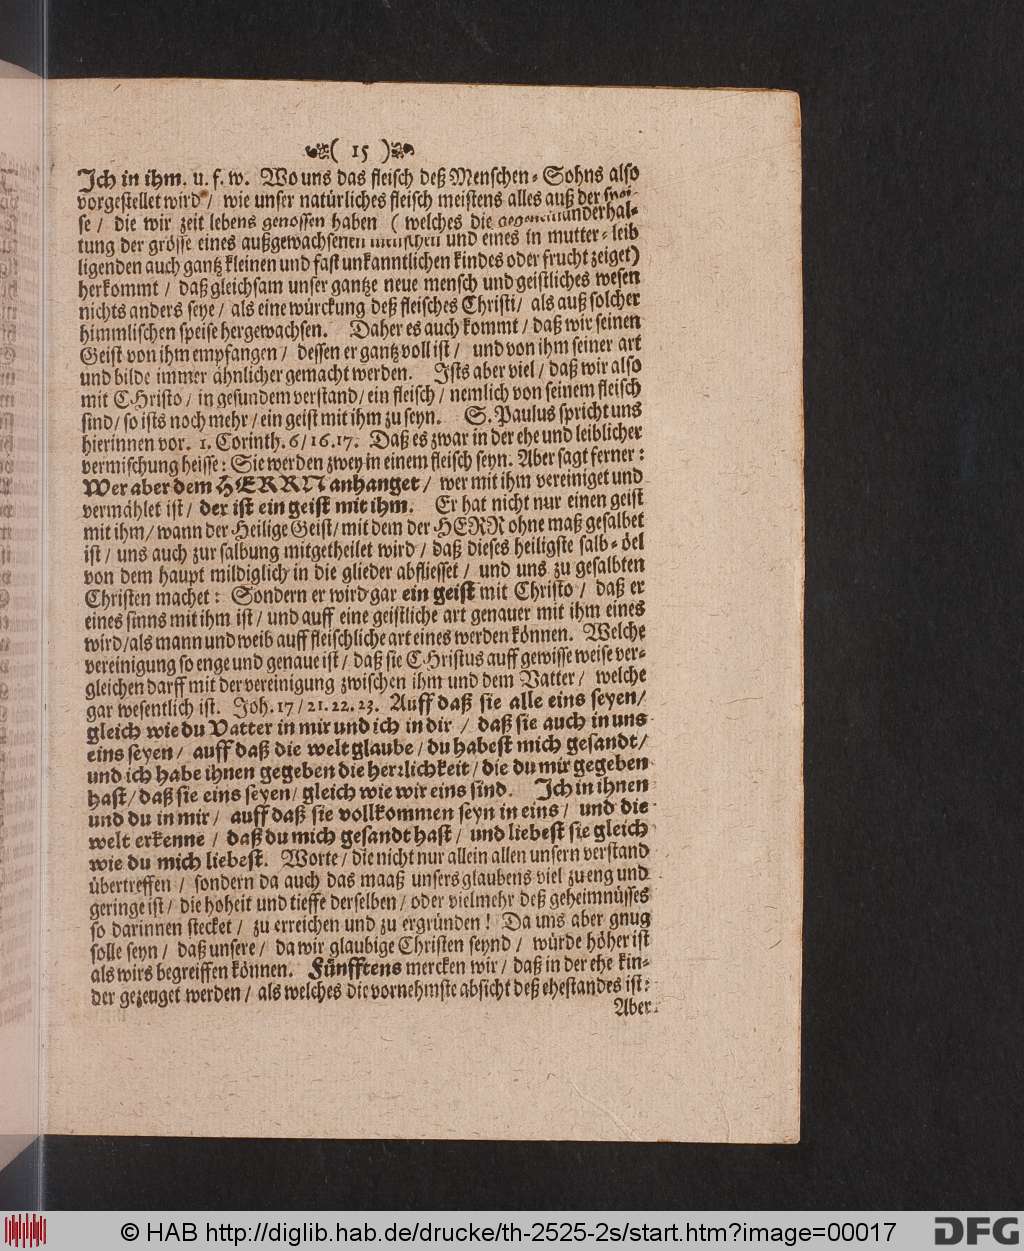 ( 15 )
Ich in ihm. u. s. w. Wo uns das fleisch deß Menschen-Sohns also
vorgestellet wird / wie unser natürliches fleisch meistens alles auß der spei-
se / die wir zeit lebens genossen haben ( welches die gegeneinanderhal-
tung der grösse eines außgewachsenen menschen und eines in mutter-leib
ligenden auch gantz kleinen und fast unkanntlichen kindes oder frucht zeiget)
herkommt / daß gleichsam unser gantze neue mensch und geistliches wesen
nichts anders seye / als eine würckung deß fleisches Christi / als auß solcher
himmlischen speise hergewachsen. Daher es auch kommt / daß wir seinen
Geist von ihm empfangen / dessen er gantz voll ist / und von ihm seiner art
und bilde immer ähnlicher gemacht werden. Ists aber viel / daß wir also
mit CHristo / in gesundem verstand / ein fleisch / nemlich von seinem fleisch
sind / so ists noch mehr / ein geist mit ihm zu seyn. S. Paulus spricht uns
hierinnen vor. 1. Corinth. 6 / 16. 17. Daß es zwar in der ehe und leiblicher
vermischung heisse: Sie werden zwey in einem fleisch seyn. Aber sagt ferner:
Wer aber dem HERRN anhanget / wer mit ihm vereiniget und
vermählet ist / der ist ein geist mit ihm. Er hat nicht nur einen geist
mit ihm / wann der Heilige Geist / mit dem der HERR ohne maß gesalbet
ist / uns auch zur salbung mitgetheilet wird / daß dieses heiligste salb-öel
von dem haupt mildiglich in die glieder abfliesset / und uns zu gesalbten
Christen machet: Sondern er wird gar ein geist mit Christo / daß er
eines sinns mit ihm ist / und auff eine geistliche art genauer mit ihm eines
wird / als mann und weib auff fleischliche art eines werden können. Welche
vereinigung so enge und genaue ist / daß sie CHristus auff gewisse weise ver-
gleichen darff mit der vereinigung zwischen ihm und dem Vatter / welche
gar wesentlich ist. Joh. 17 / 21. 22. 23. Auff daß sie alle eins seyen /
gleich wie du Vatter in mir und ich in dir / daß sie auch in uns
eins seyen / auff daß die welt glaube / du habest mich gesandt /
und ich habe ihnen gegeben die herrlichkeit / die du mir gegeben
hast / daß sie eins seyen / gleich wie wir eins sind. Ich in ihnen
und du in mir / auff daß sie vollkommen seyn in eins / und die
welt erkenne / daß du mich gesandt hast / und liebest sie gleich
wie du mich liebest. Worte / die nicht nur allein allen unsern verstand
übertreffen / sondern da auch das maaß unsers glaubens viel zu eng und
geringe ist / die hoheit und tieffe derselben / oder vielmehr deß geheimnüsses
so darinnen stecket / zu erreichen und zu ergründen! Da uns aber gnug
solle seyn / daß unsere / da wir glaubige Christen seynd / würde höher ist
als wirs begreiffen können. Fünfftens mercken wir / daß in der ehe kin-
der gezeuget werden / als welches die vornehmste absicht deß ehestandes ist:
Aber
© HAB http://diglib.hab.de/drucke/th-2525-2s/start.htm?image=00017
DFG